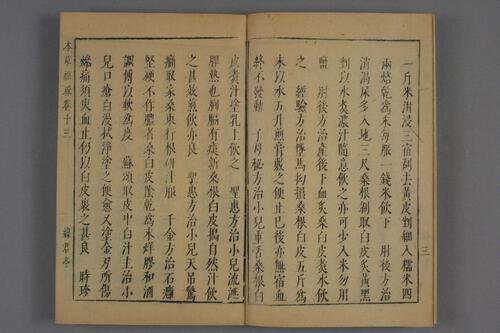 三
一斤米泔浸三宿刮去黃皮剉細入糯米四
兩焙乾爲末每服一錢米飲下 肘後方治
消渴尿多入地三尺桑根剝取白皮炙黃黑
剉以水煮濃汁隨意飲之亦可少入米勿用
鹽 肘後方治產後下血炙桑白皮煑水飲
之 經驗方治墜馬拗損桑根白皮五斤爲
末以水五升煎膏敷之便止已後亦無宿血
終不發動 子母秘方治小兒重舌桑根白
皮煮汁塗乳上飲之 聖惠方治小兒流涎
脾熱也胸膈有痰新桑根白皮搗自然汁飲
之甚效煎飲亦良 聖惠方治小兒天吊驚
癇取家桑東行根研汁服 千金方治石癰
堅硬不作膿者桑白皮陰乾爲末烊膠和酒
調傅以軟爲度 蘇頌取皮中白汁主治小
兒口瘡白漫拭淨塗之便愈又塗金刃所傷
燥痛須臾血止仍以白皮裹之甚良 時珍
本草經疏卷十三
綠君亭